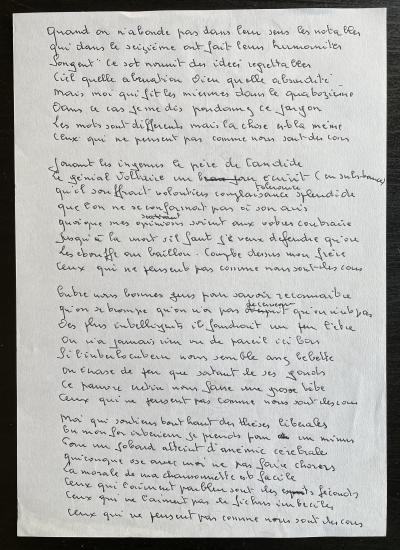 Quand on n'abonde pas dans leur sens les notables
qui dans le seizième ont fait leurs humanités
Songent " Ce sot nourrit des idées regrettables
Ciel quelle aberration Dieu quelle absurdité
Mais moi qui fit les miennes dans le quatorzième
Dans ce cas je me dis pardonnez ce jargon
Les mots sont différents mais la chose est la même
Ceux qui ne pensent pas comme nous sont des cons
Jouant les ingénus le père de Candide
Le génial Voltaire un jour écrivit (en substance)
qu'il souffrait volontiers complaisance splendide
tolérance
que l'on ne se conformât pas à son avis
quoique mes opinions soient aux vôtres contraires
Jusqu'à la mort s'il faut j'veux défendre qu'on
Les étouffe au baillon. Compte dessus mon frère
Ceux qui ne pensent pas comme nous sont des cons
Entre nous bonnes gens pour savoir reconnaître
qu'on se trompe qu'on n'a pas d'esprit qu'on n'est pas
Des plus intelligents il faudrait un peu l'être
On n'a jamais rien vu de pareil ici bas
Si l'interlocuteur nous semble assez bébête
On chasse de peu que sortant de ses gonds
Ce pauvre crétin nous fasse une grosse tête
Ceux qui ne pensent pas comme nous sont des cons
Moi qui soutiens tout haut des thèses libérales
En mon for intérieur je prends pour un minus
Pour un tobard atteint d'anémie cérébrale
quiconque ose avec moi ne pas faire chorus
La morale de ma chansonnette est facile
Ceux qui l'aiment parbleu sont des esprits féconds
Ceux qui ne l'aiment pas de fichus imbéciles
Ceux qui ne pensent pas comme nous sont des cons